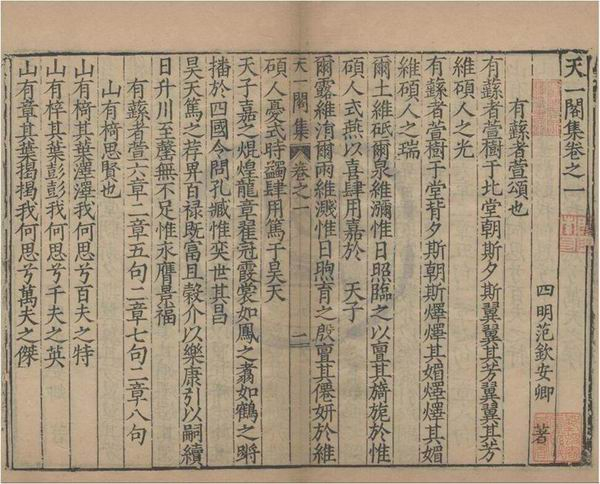 天一閣集卷之一
四明范欽安卿 著
有蘇者萱頌也
有蘇者萱樹于比堂朝斯夕斯翼翼其芳翼翼其芳
維碩人之光
有蘇者萱樹于堂背夕斯朝斯燁燁其媚燁燁其媚
維碩人之瑞
爾土維砥爾泉維瀰惟日照臨之以亶其旖旎於惟
碩人式燕以喜肆用嘉於 天子
爾露維湑爾雨維濺惟日煦育之殷亶其僊妍於維
碩人憂式時蠲肆用篤于昊天
天一閣集 卷之一 二
天子嘉之焜煌龍章翟冠霞裳如鳳之翥如鶴之將
播於四國令問孔臧惟奕世其昌
昊天篤之荐畀百禄既富且穀介以樂康引以嗣續
日升川至罄無不足惟永膺景福
有蘇者萱六章二章五句二章七句二章八句
山有椅思賢也
山有椅其葉澤澤我何思兮百夫之特
山有梓其葉彭彭我何思兮千夫之英
山有章其葉揭揭我何思兮萬夫之傑